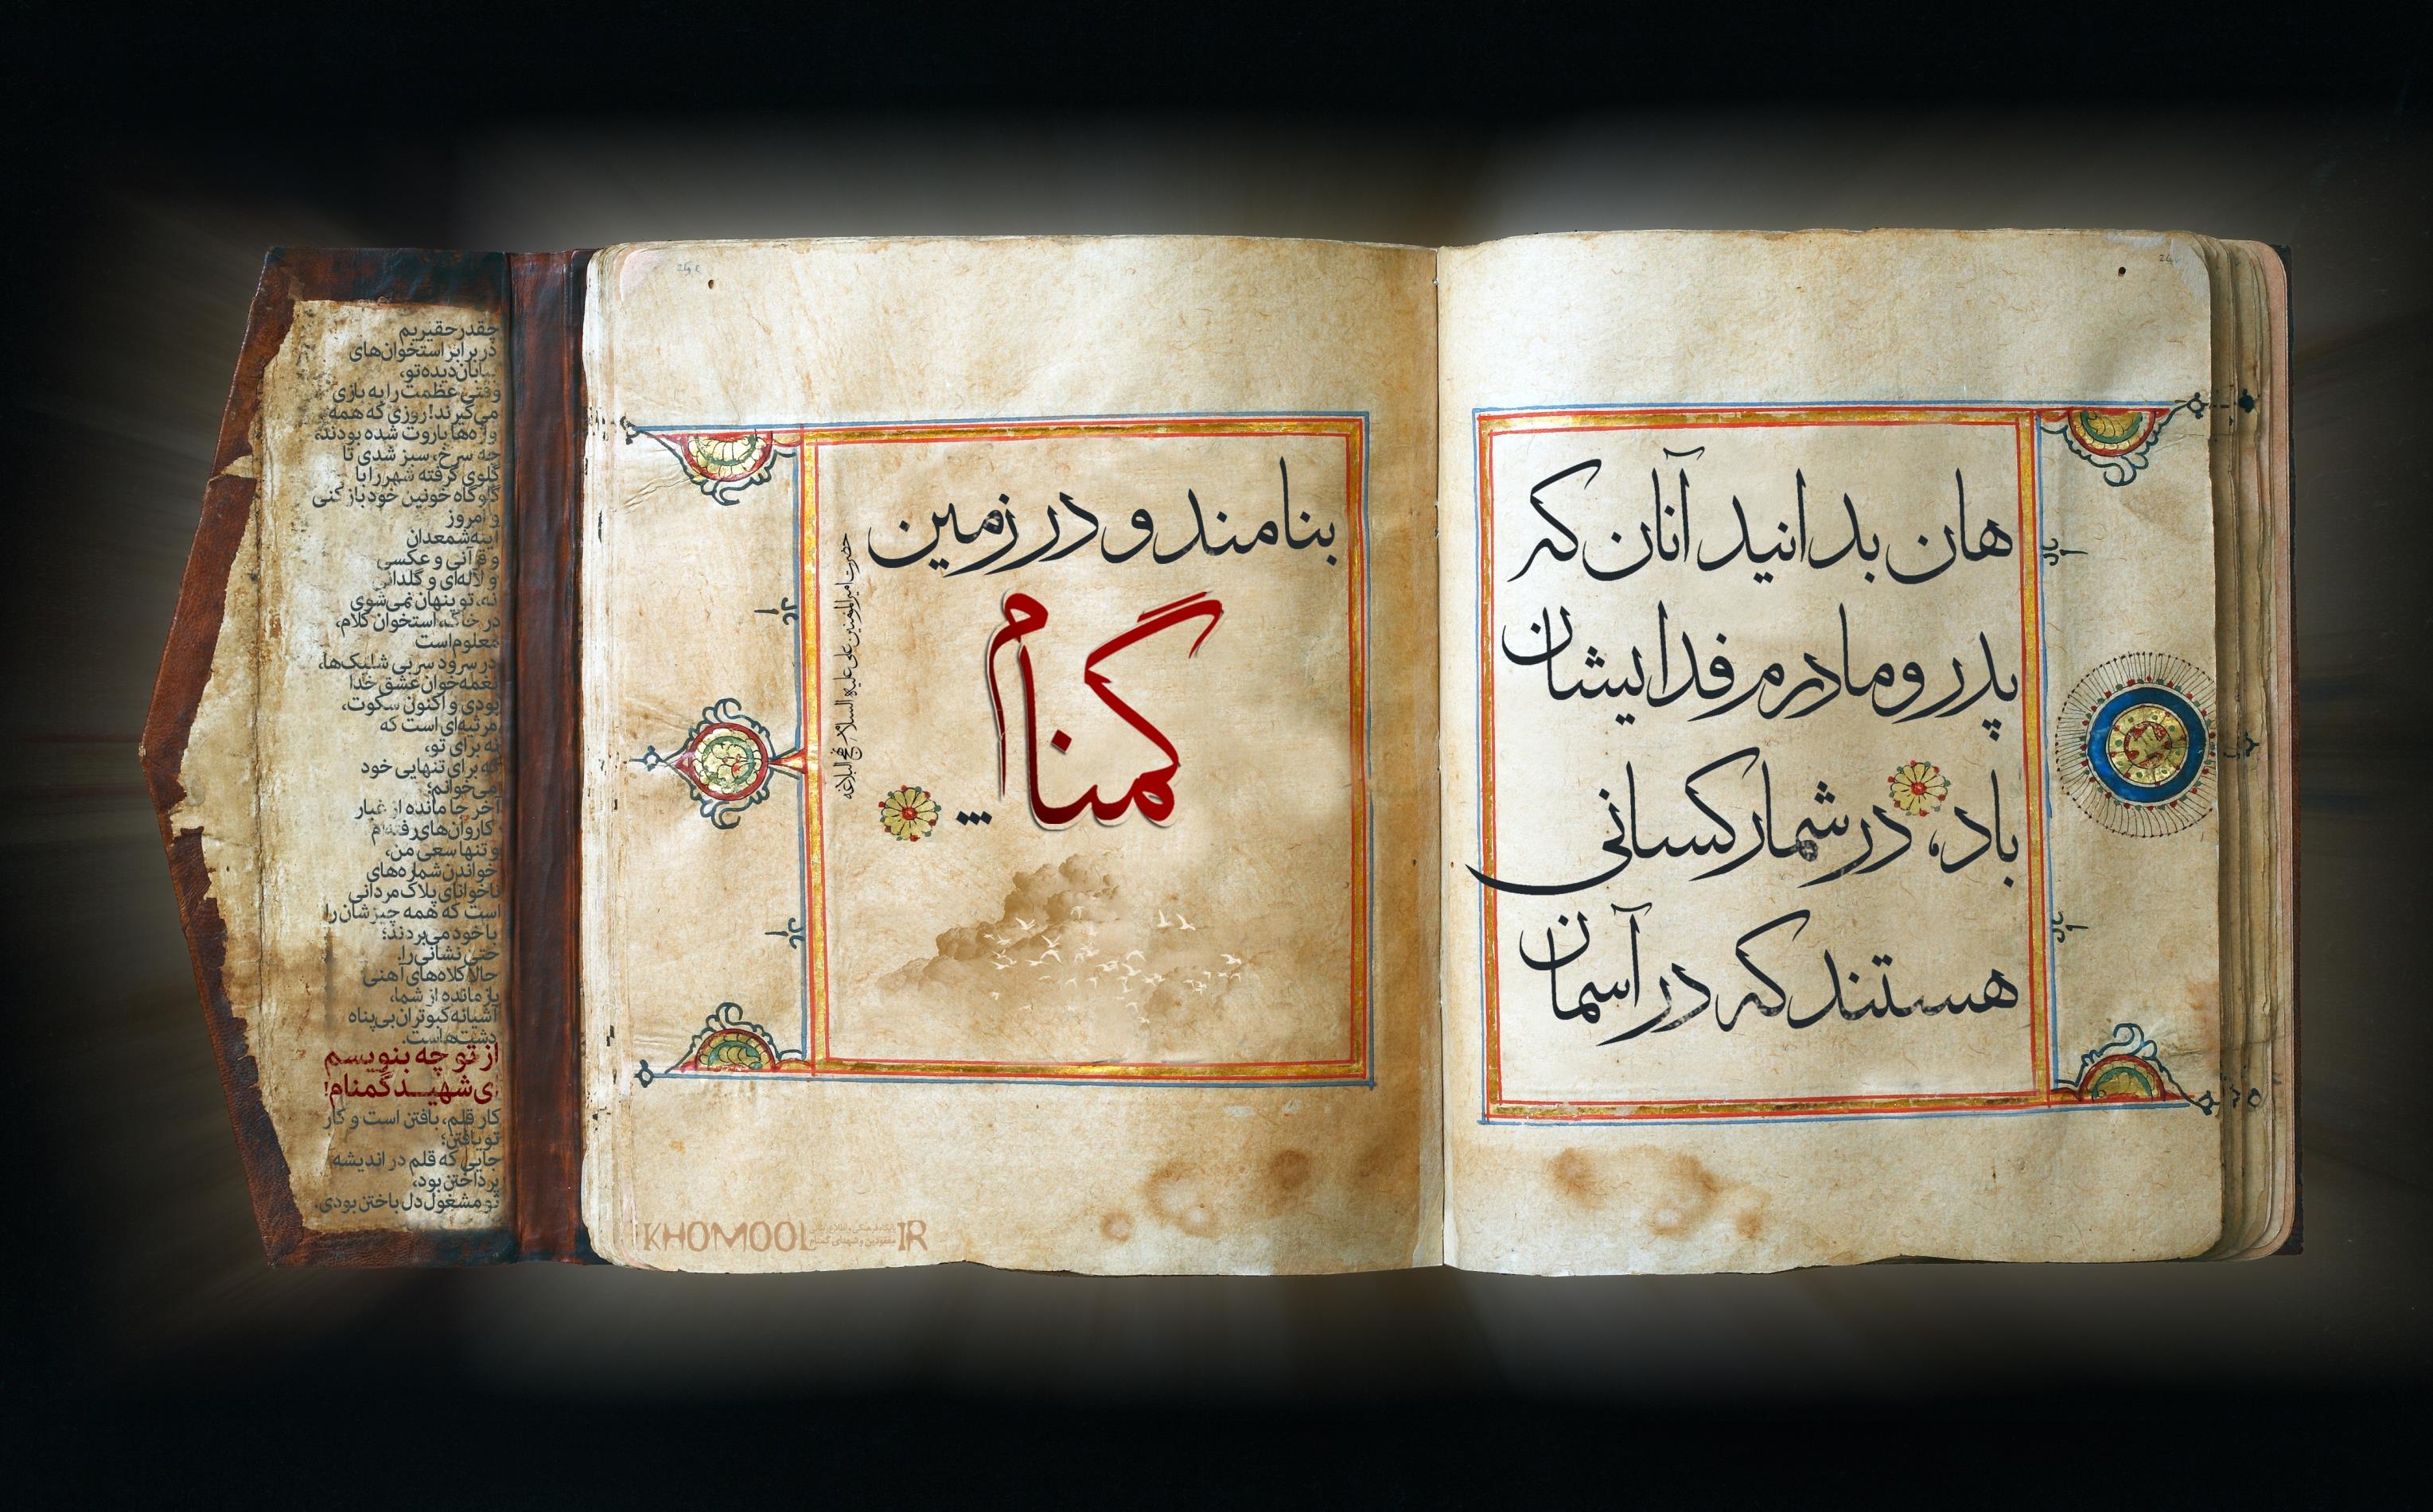 هان بدانید آنان که
پدر و مادرم فدایشان
باد، در شمار کسانی
هستند که در آسمان
بنامند و در زمین
گمنام
...
حضرت امیرالمؤمنین علی علیه السلام نهج البلاغه
چقدر حقیریم
در برابر استخوان‌های
بیابان‌دیده‌تو،
وقتی عظمت را به بازی
می‌گیرند! روزی که همه
واژه‌ها باروت شده بودند،
چه سرخ، سبز شدی تا
گلوی گرفته شهر را با
گلوگاه خونین خود باز کنی
و امروز
آینه‌شمعدان
و قرآنی و عکسی
و لاله‌ای و گلدانی
نه، تو پنهان نمی‌شوی
در خاک، استخوان کلام،
معلوم است
در سرود سربی شلیک‌ها،
نغمه‌خوان عشق خدا
بودی و اکنون سکوت،
مرثیه‌ای است که
نه برای تو،
که برای تنهایی خود
می‌خوانم؛
آخر جا مانده از غبار
کاروان‌های رفته‌ام
و تنها سعی من،
خواندن شماره‌های
ناخوانای پلاک مردانی
است که همه چیزشان را
با خود می‌بردند؛
حتی نشانی را.
حالا کلاه‌های آهنی
بازمانده از شما،
آشیانه کبوتران بی‌پناه
دشت‌هاست.
از تو چه بنویسم
ای شهیـد گمنام!
کار قلم، بافتن است و کار
تو یافتن؛
جایی که قلم در اندیشه
پرداختن بود،
تو مشغول دل باختن بودی.
KHOMOOL.IR